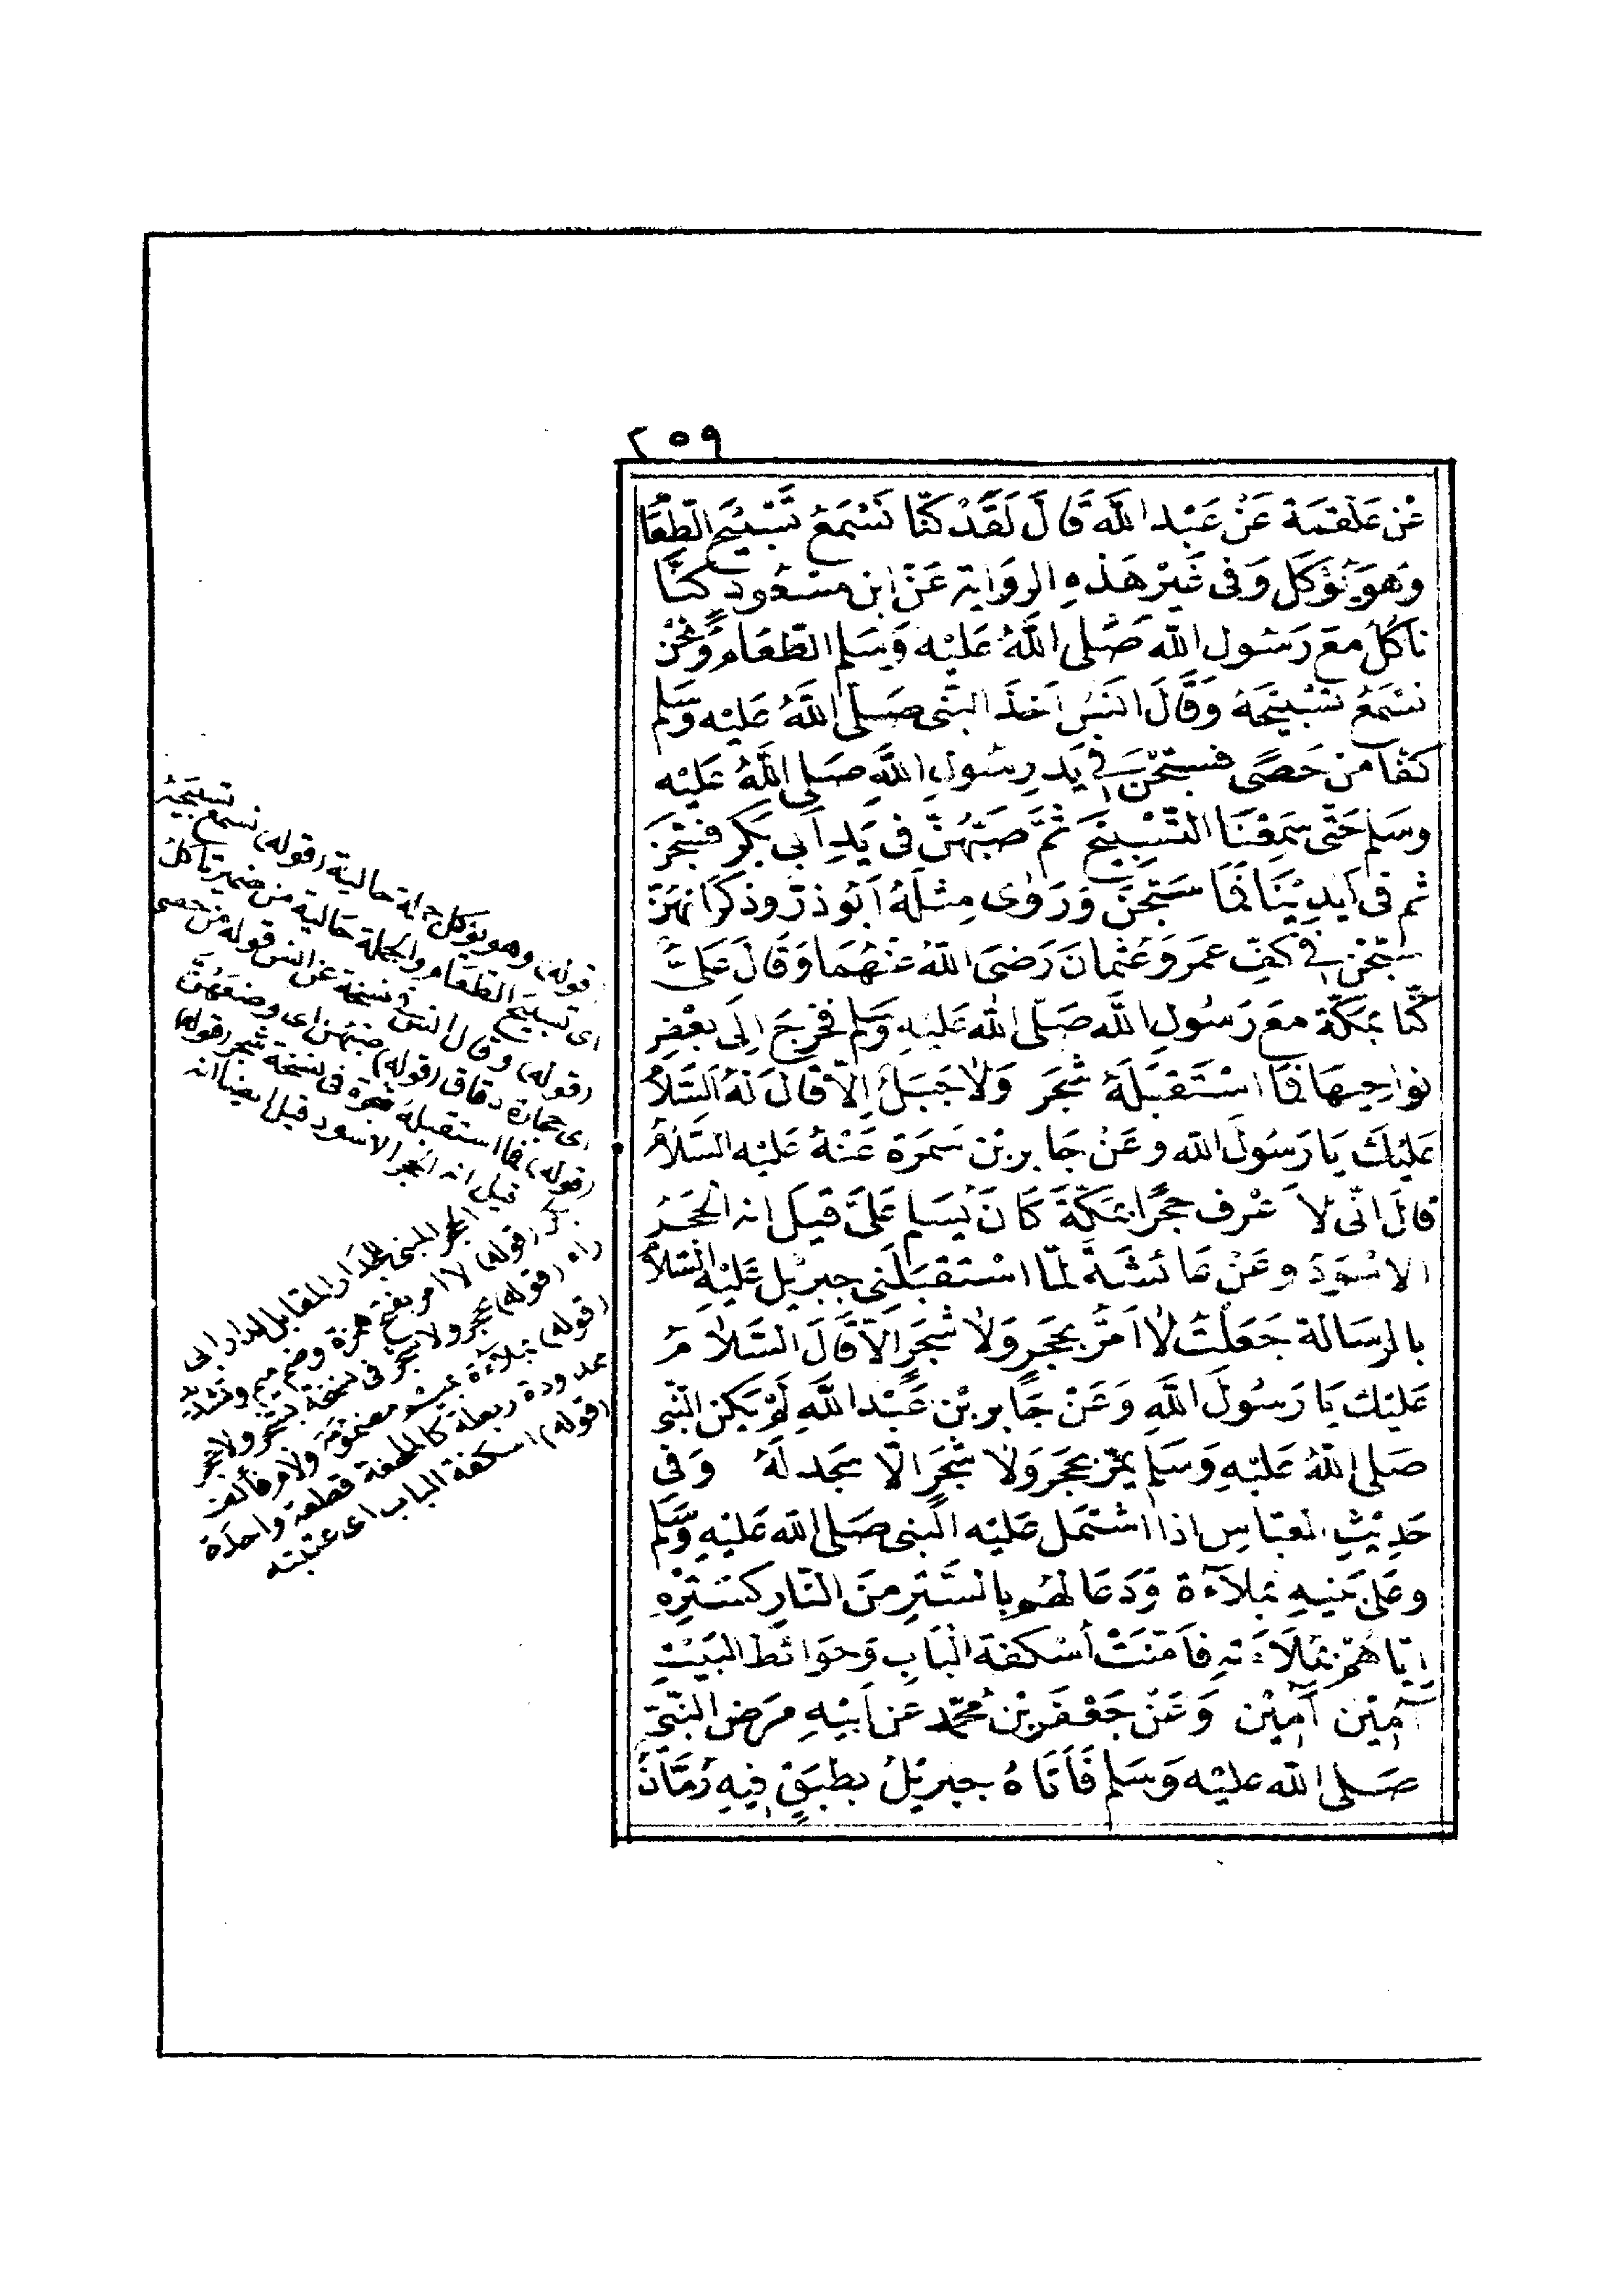 ٢٥٩
عَنْ عَلْقَمَةَ عَنْ عَبْدِ اللَّهِ قَالَ لَقَدْ كُنَّا نَسْمَعُ تَسْبِيحَ الطَّعَا
وَهُوَ يُؤْكَلُ وَفِى غَيْرِ هَذِهِ الرِّوَايَةِ عَنْ ابْنِ مَسْعُودٍ كُنَّا
نَأكُلُ مَعَ رَسُولِ اللَّهِ صَلَّى اللَّهُ عَلَيْهِ وَسَلَّمَ الطَّعَامَ وَنَحْنُ
نَسْمَعُ تَسْبِيحَهُ وَقَالَ اَنَسٌ اَخَذَ النَّبِىُّ صَلَّى اللَّهُ عَلَيْهِ وَسَلَّمَ
كَفًّا مِنْ حَصًى فَسَبَّحْنَ فِي يَدِ رَسُولِ اللَّهِ صَلَّى اللَّهُ عَلَيْهِ
وَسَلَّمَ حَتَّى سَمِعْنَا التَّسْبِيحَ ثُمَّ صَبَّهُنَّ فِى يَدِ أَبِى بَكْرٍ فَسَبَّحْنَ
ثُمَّ فِى اَيْدِيْنَا فَمَا سَبَّحْنَ وَرَوَى مِثْلَهُ اَبُو ذَرٍّ وَذَكَرَ اَنَّهُنَّ
سَبَّحْنَ فِي كَفِّ عُمَرَ وَعُثْمَانَ رَضِىَ اللَّهُ عَنْهُمَا وَقَالَ عَلِىٌّ
كُنَّا بِمَكَّةَ مَعَ رَسُولِ اللَّهِ صَلَّى اللَّهُ عَلَيْهِ وَسَلَّمَ فَخَرَجَ اِلَى بَعْضِ
نَوَاحِيهَا فَمَا اسْتَقْبَلَهُ شَجَرٌ وَلَا جَبَلٌ اِلَّا قَالَ لَهُ السَّلَامُ
عَلَيْكَ يَا رَسُولَ اللَّهِ وَعَنْ جَابِرِ بْنِ سَمُرَةَ عَنْهُ عَلَيْهِ السَّلَامُ
قَالَ اِنِّى لَاَعْرِفُ حَجَرًا بِمَكَّةَ كَانَ يُسَلِّمُ عَلَىَّ قِيلَ اِنَّهُ الْحَجَرُ
الاَسْوَدُ وَعَنْ عَائِشَةَ لَمَّا اسْتَقْبَلَنِى جِبْرِيْلُ عَلَيْهِ السَّلَامُ
بِالرِّسَالَةِ جَعَلْتُ لَا اَمُرُّ بِحَجَرٍ وَلَا شَجَرٍ اِلَّا قَالَ السَّلَامُ
عَلَيْكَ يَا رَسُولَ اللَّهِ وَعَنْ جَابِرِ بْنِ عَبْدِ اللَّهِ لَمْ يَكُنِ النَّبِىُّ
صَلَّى اللَّهُ عَلَيْهِ وَسَلَّمَ يَمُرُّ بِحَجَرٍ وَلَا شَجَرٍ اِلَّا سَجَدَ لَهُ وَفِى
حَدِيْثِ الْعَبَّاسِ اِذَا اشْتَمَلَ عَلَيْهِ النَّبِى صَلَّى اللَّهُ عَلَيْهِ وَسَلَّمَ
وَعَلَى بَنِيهِ بِمُلَآءَةٍ وَدَعَا لَهُمْ بِالسَّتْرِ مِنَ النَّارِ كَسَتْرِهِ
اِيَّاهُمْ بِمُلَاءَتِهِ فَاَمَّنَتْ أُسْكُفَةُ الْبَابِ وَحَوَائِطُ الْبَيْتِ
آمِيْن آمِيْن وَعَنْ جَعْفَرِ بْنِ مُحَمَّدٍ عَنْ اَبِيْهِ مَرِضَ النَّبِىُّ
صَلَّى اللَّهُ عَلَيْهِ وَسَلَّمَ فَأَتَاهُ جِبْرِيْلُ بِطَبَقٍ فِيهِ رُمَّانٌ
(قوله) وهو يؤكل جملة حالية (قوله) نسمع تسبيحه
اى تسبيح الطعام والجملة حالية من ضمير نأكل
(قوله) وقال انس فى نسخة عن انس قوله من حصى
اى حجارة دقاق (قوله) صبّهن اى وضعهن
(قوله) فما استقبله شجرة فى نسخة شجر (قوله)
قيل انه الحجر الاسود قيل ايضا انه
الحجر المبنى بالجدار المقابل لدار ابى
بكر (قوله) لا امر بفتح همزة وضم ميم وتشديد
راء (قوله) بحجر ولا شجر فى نسخة بشجر ولا حجر
(قوله) بملآءة بميم مضمومة ولام فألف
ممدودة ريطة كالملحفة قطعة واحدة
(قوله) اسكفة الباب اى عتبته